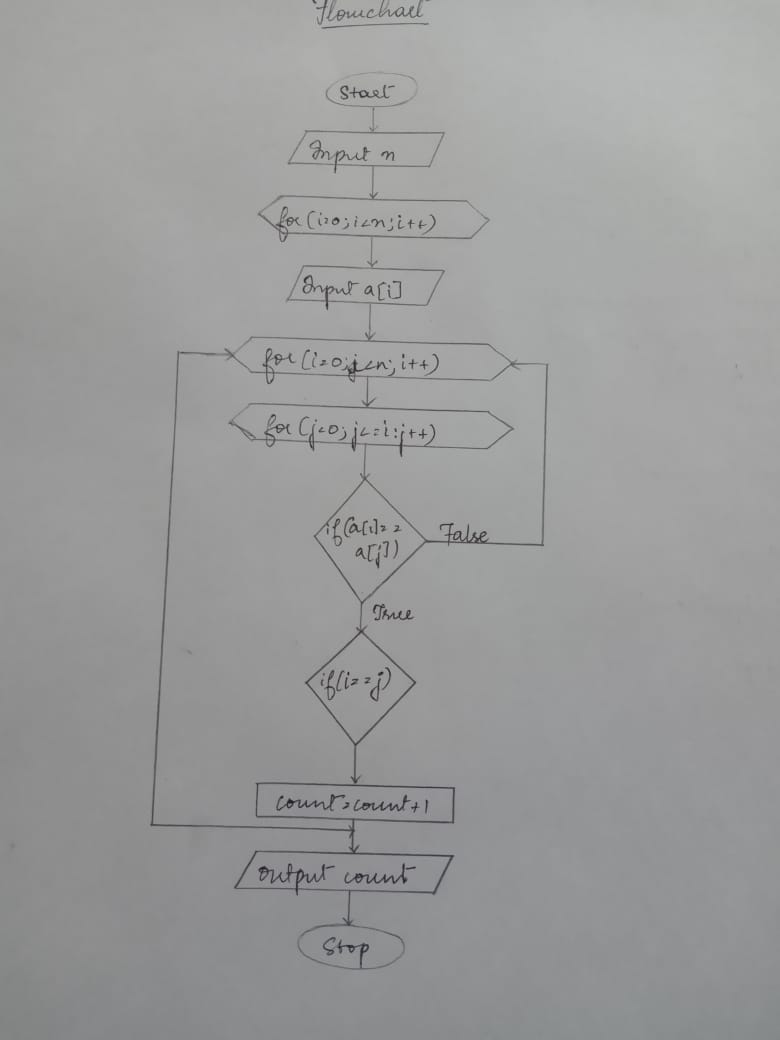 Flowchart
Start
Input n
for (i=0; i<n; i++)
Input a[i]
for (i=0; j<n; i++)
for (j<0; j<=i; j++)
if (a[i]==
a[j])
False
True
if(i==j)
count=count+1
output count
Stop